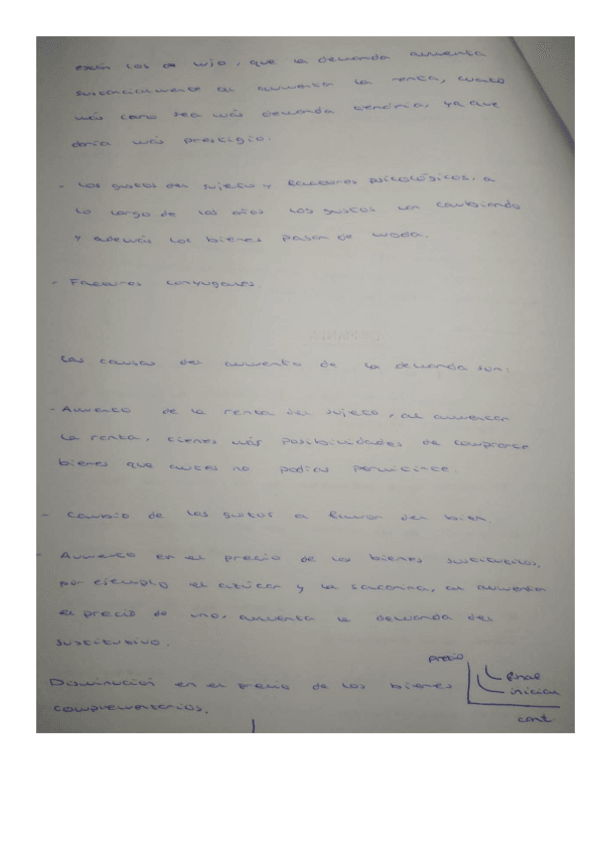 están los de lujo, que la demanda aumenta
sustancialmente al aumentar la renta, cuanto
más caro sea más demanda tendría, ya que
daría más prestigio.
- Los gustos del sujeto y factores psicológicos, a
lo largo de los años los gustos van cambiando
y además los bienes pasan de moda.
- Factores conyugales.
Las causas del aumento de la demanda son:
- Aumento de la renta del sujeto, al aumentar
la renta, tienes más posibilidades de comprarte
bienes que antes no podías permitirte.
- Cambio de los gustos a favor del bien.
- Aumento en el precio de los bienes sustitutivos,
por ejemplo el azúcar y la sacarina, al aumentar
el precio de uno, aumenta la demanda del
sustitutivo.
precio
final
Disminución en el precio de los bienes
inicial
complementarios.
cant